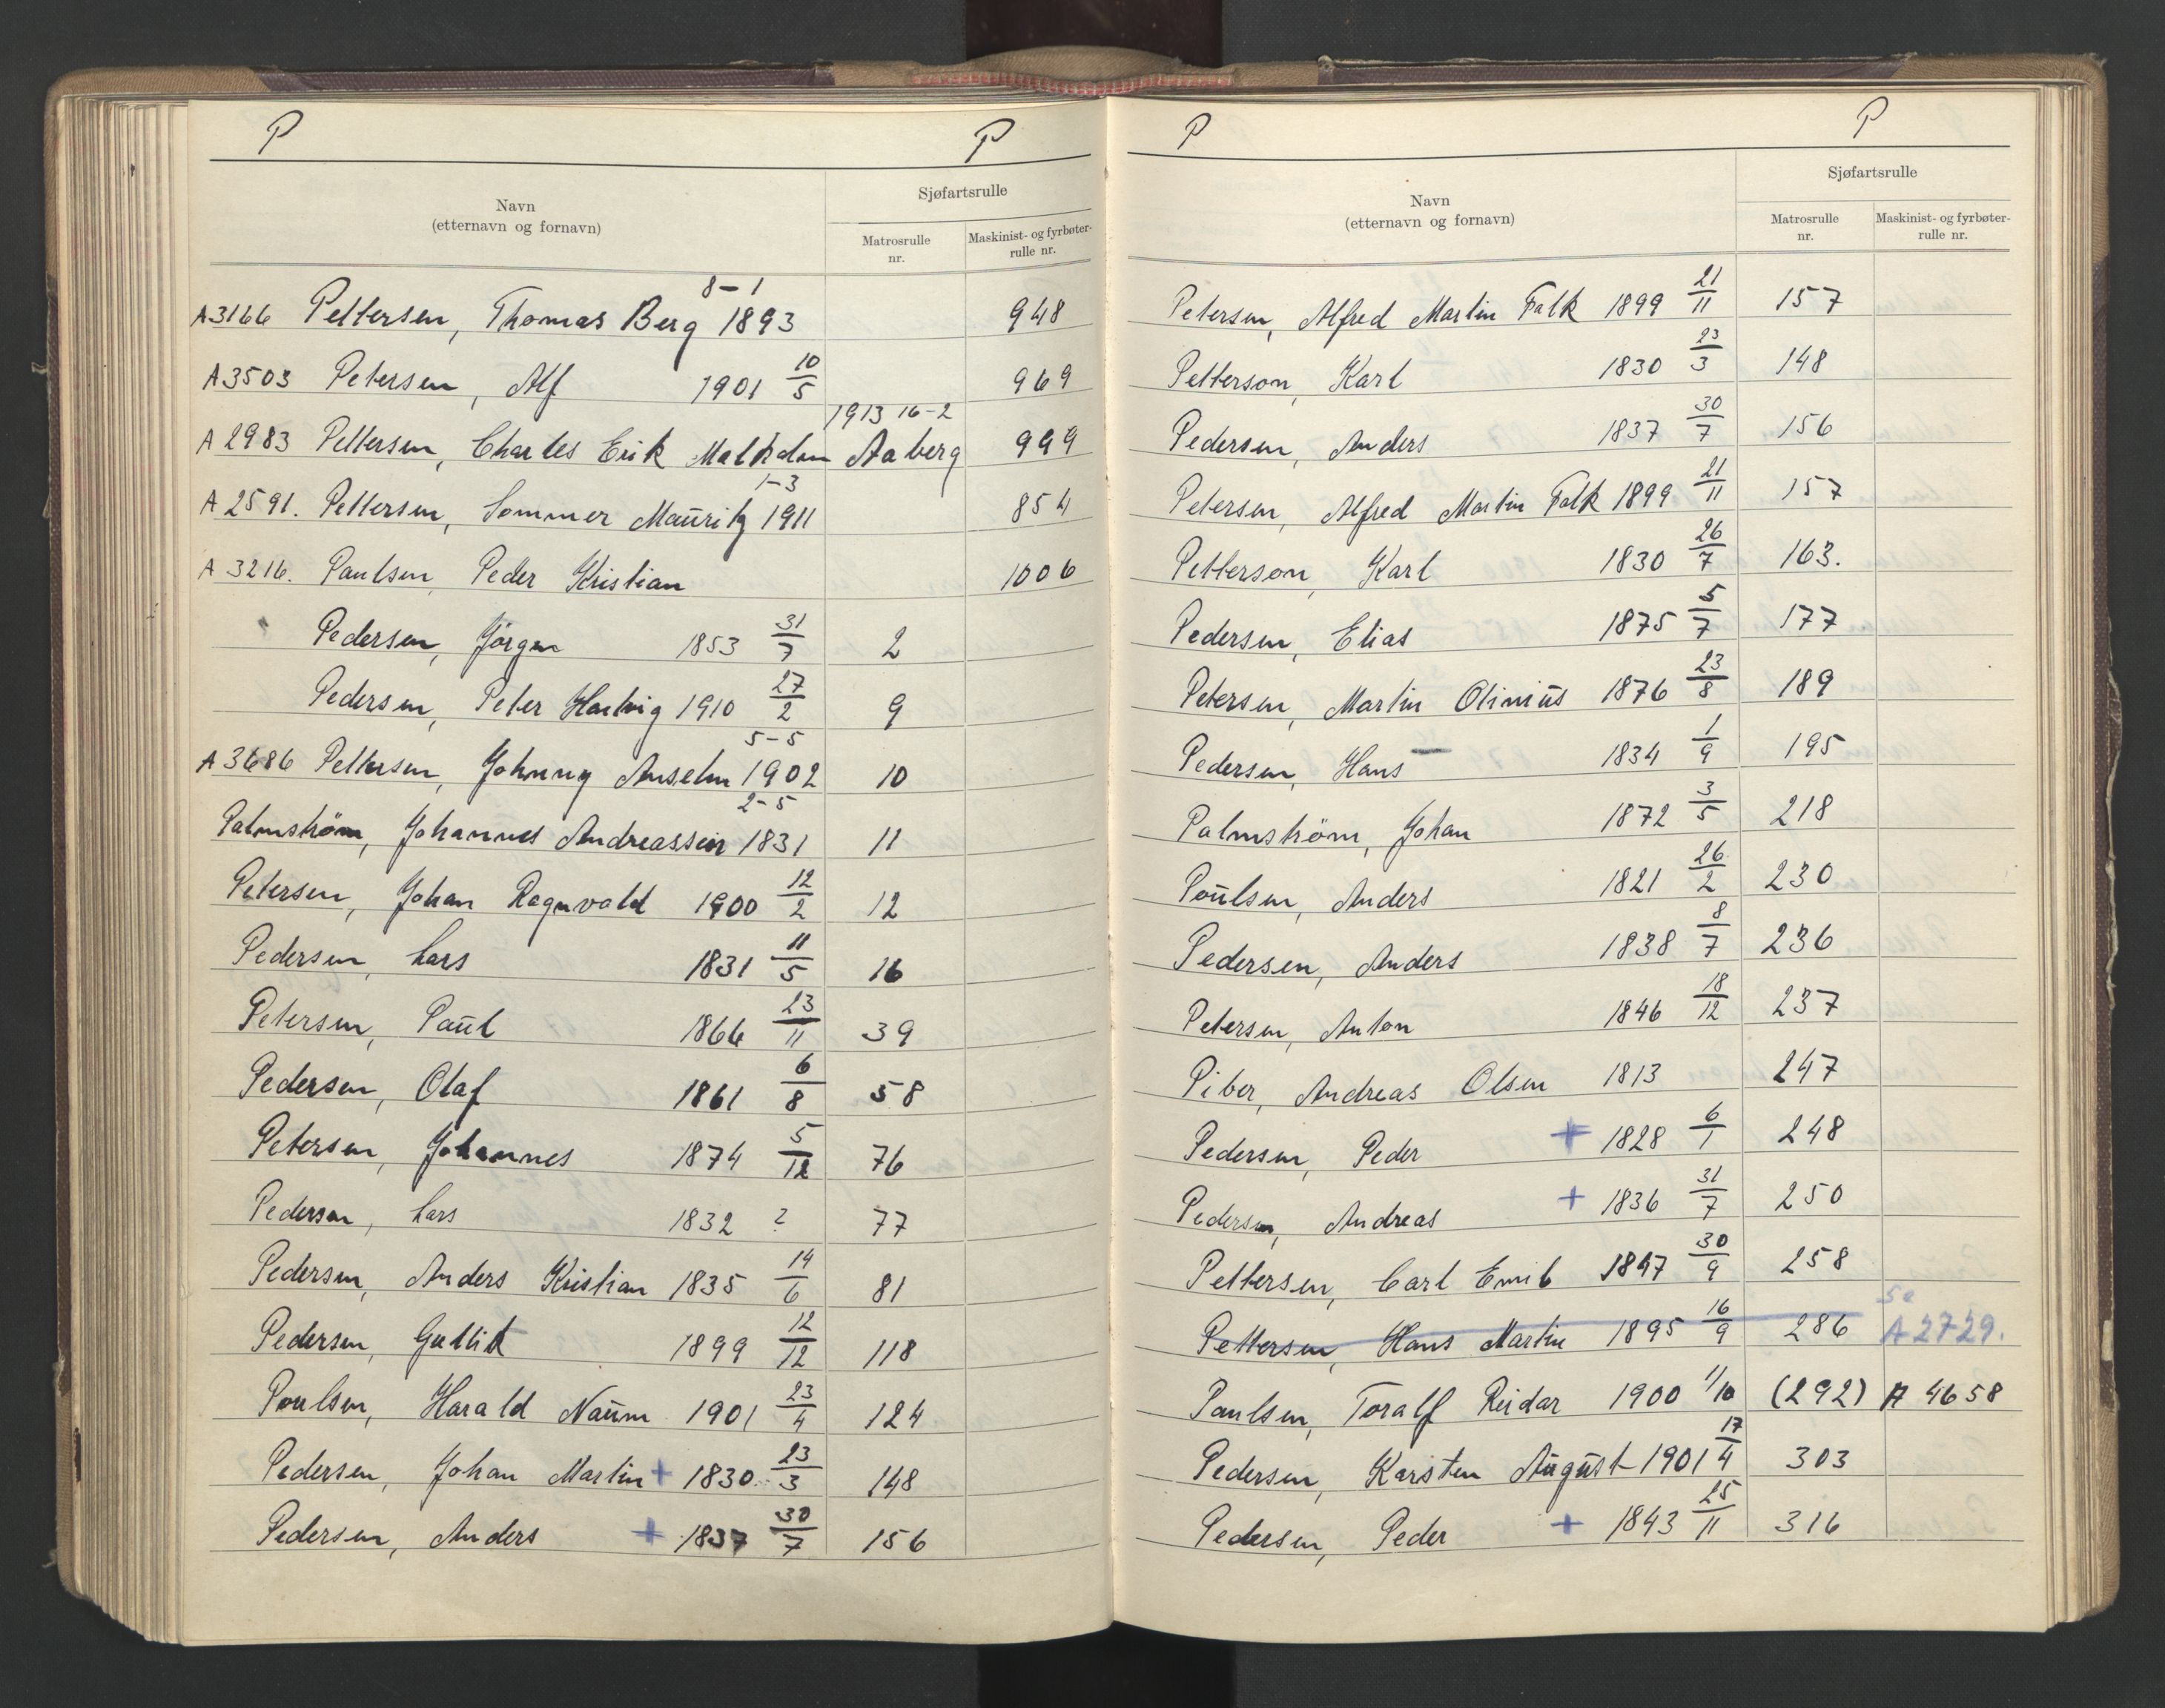 P P
Navn
(etternavn og fornavn)
Sjøfartsrulle
Matrosrulle nr.
Maskinist- og fyrbøter-rulle nr.
8-1
A3166 Pettersen, Thomas Berg 1893 948
A3503 Petersen, Alf 1901 10/5 969
1913 16-2
A 2983 Pettersen, Charles Erik Aaberg 999
1-3
A 2591. Pettersen, Sommer Mauritz 1911 854
A 3216. Paulsen, Peder Kristian 1006
Pedersen, Jörgen 1853 31/7 2
Pedersen, Peter Hartvig 1910 27/2 9
5-5
A 3686 Pettersen, Johnny Anselm 1902 10
2-5
Palmström, Johannes Andreassen 1831 11
Petersen, Johan Ragnvald 1900 12/2 12
Pedersen, Lars 1831 11/5 16
Petersen, Paul 1866 23/11 39
Pedersen, Olaf 1861 6/8 58
Petersen, Johannes 1874 5/12 76
Pedersen, Lars 1832 ? 77
Pedersen, Anders Kristian 1835 14/6 81
Pedersen, Gullik 1899 12/12 118
Poulsen, Harald Naum 1901 23/4 124
Pedersen, Johan Martin + 1830 23/3 148
Pedersen, Anders + 1837 30/7 156
P P
Navn
(etternavn og fornavn)
Sjøfartsrulle
Matrosrulle nr.
Maskinist- og fyrbøter-rulle nr.
Petersen, Alfred Martin Falk 1899 21/11 157
Petterson, Karl 1830 23/3 148
Pedersen, Anders 1837 30/7 156
Petersen, Alfred Martin Falk 1899 21/11 157
Petterson, Karl 1830 26/7 163.
Pedersen, Elias 1875 5/7 177
Petersen, Martin Olinius 1876 23/8 189
Pedersen, Hans 1834 1/9 195
Palmström, Johan 1872 3/5 218
Poulsen, Anders 1821 26/2 230
Pedersen, Anders 1838 8/7 236
Petersen, Anton 1846 18/12 237
Piber, Andreas Olsen 1813 247
Pedersen, Peder + 1828 6/1 248
Pedersen, Andreas + 1836 31/7 250
Pettersen, Carl Emil 1847 30/9 258
Pettersen, Hans Martin 1895 16/9 286 Se A 2729.
Paulsen, Toralf Reidar 1900 1/10 (292) A 4658
Pedersen, Karsten August 1901 17/4 303
Pedersen, Peder + 1843 25/11 316